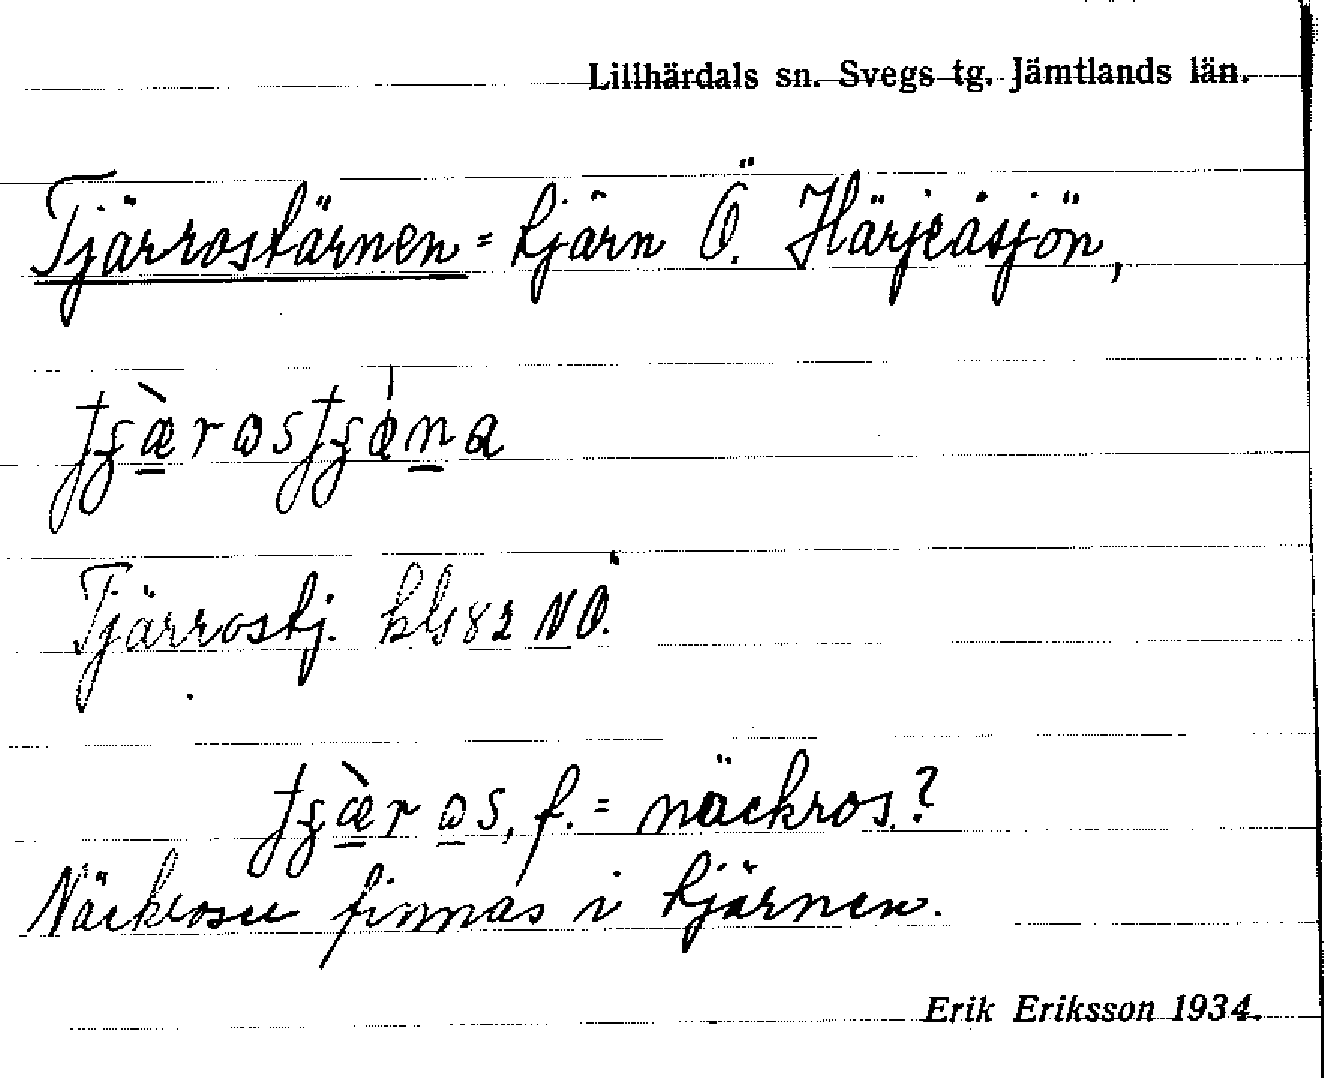 Lillhärdals sn. Svegs tg. Jämtlands län.
Tjärrostärnen = tjärn Ö. Härjeåsjön,
Tjärrostj. kbl 82 NÖ.
f. = näckros?
Näckrosor finnas i tjärnen.
Erik Eriksson 1934.